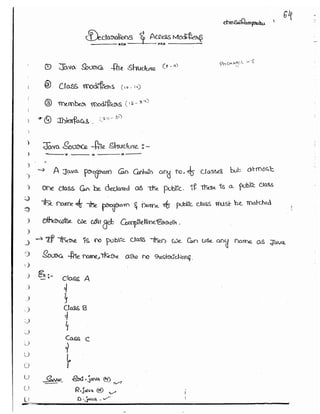 64
① Declarations & Access Modifiers
① Java Source file structure
② Class modifiers
③ member modifiers
* ④ Interfaces
Java Source file Structure :-
→ A Java program can contain any no. of classes but atmost
one class can be declared as the public. if there is a public class
the name of the program & name of public class must be matched
otherwise we will get CompileTimeError.
→ If there is no public class then we can use any name as Java
Source file name, there are no restrictions.
Ex:- class A
{
}
class B
{
}
class C
{
}
Save
R.java
D.java